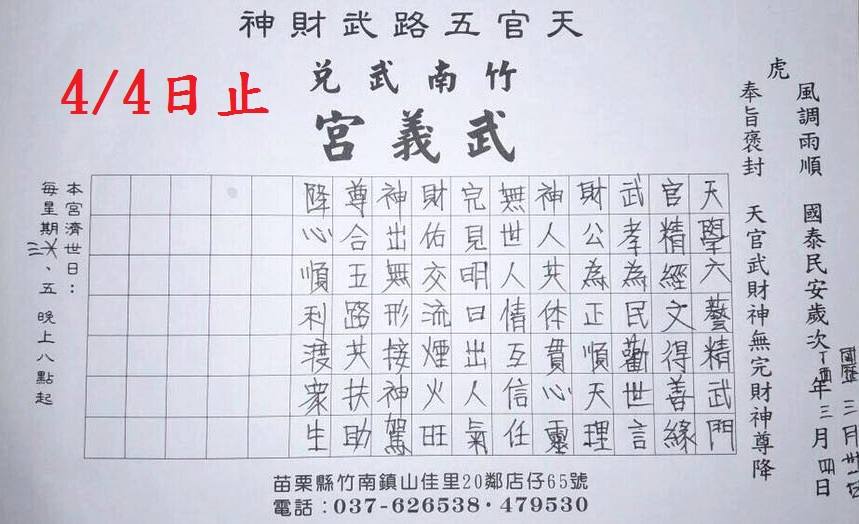 天官五路武財神
竹南武兌
武義宮
4/4日止
虎
風調雨順 國泰民安歲次丁酉年三月四日
國曆三月卅一日
奉旨褒封 天官武財神無完財神尊降
天學六藝精武門
官精經文得善緣
武孝為民勸世言
財公為正順天理
神人共体貫心靈
無世人情互信任
完見明日出人氣
財佑交流煙火旺
神出無形接神駕
尊合五路共扶助
降心順利渡眾生
本宮濟世日：
每星期三、五 晚上八點起
苗栗縣竹南鎮山佳里20鄰店仔65號
電話：037-626538·479530